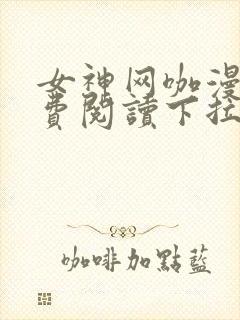 女神网咖漫
費閱讀下拉
咖啡加點藍